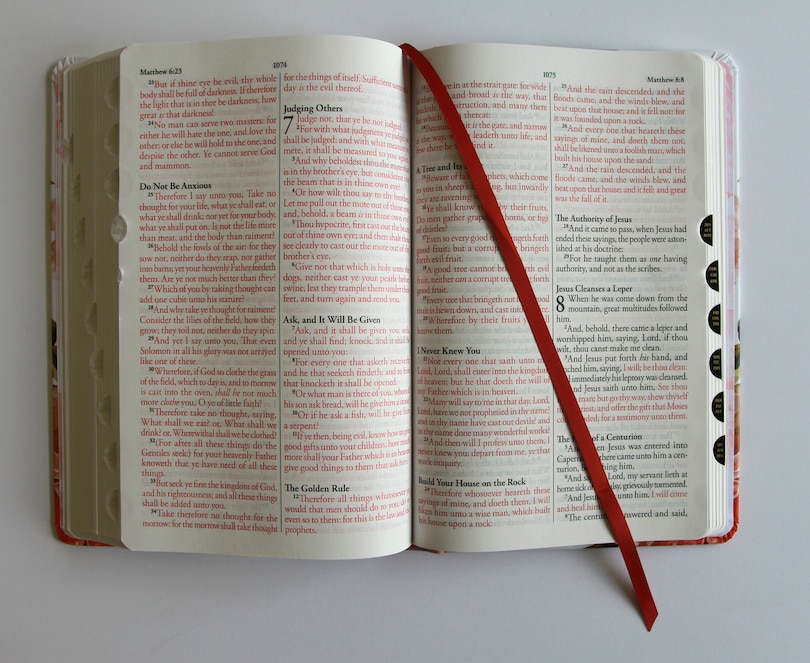 Matthew 6:23
1074
23But if thine eye be evil, thy whole
body shall be full of darkness. If therefore
the light that is in thee be darkness, how
great is that darkness!
24No man can serve two masters: for
either he will hate the one, and love the
other; or else he will hold to the one, and
despise the other. Ye cannot serve God
and mammon.
Do Not Be Anxious
25Therefore I say unto you, Take no
thought for your life, what ye shall eat, or
what ye shall drink; nor yet for your body,
what ye shall put on. Is not the life more
than meat, and the body than raiment?
26Behold the fowls of the air: for they
sow not, neither do they reap, nor gather
into barns; yet your heavenly Father feedeth
them. Are ye not much better than they?
27Which of you by taking thought can
add one cubit unto his stature?
28And why take ye thought for raiment?
Consider the lilies of the field, how they
grow; they toil not, neither do they spin:
29And yet I say unto you, That even
Solomon in all his glory was not arrayed
like one of these.
30Wherefore, if God so clothe the grass
of the field, which to day is, and to morrow
is cast into the oven, shall he not much
more clothe you, O ye of little faith?
31Therefore take no thought, saying,
What shall we eat? or, What shall we
drink? or, Wherewithal shall we be clothed?
32(For after all these things do the
Gentiles seek:) for your heavenly Father
knoweth that ye have need of all these
things.
33But seek ye first the kingdom of God,
and his righteousness; and all these things
shall be added unto you.
34Take therefore no thought for the
morrow: for the morrow shall take thought
for the things of itself. Sufficient unto the
day is the evil thereof.
Judging Others
7 Judge not, that ye be not judged.
2For with what judgment ye judge, ye
shall be judged: and with what measure ye
mete, it shall be measured to you again.
3And why beholdest thou the mote that
is in thy brother's eye, but considerest not
the beam that is in thine own eye?
4Or how wilt thou say to thy brother,
Let me pull out the mote out of thine eye;
and, behold, a beam is in thine own eye?
5Thou hypocrite, first cast out the beam
out of thine own eye; and then shalt thou
see clearly to cast out the mote out of thy
brother's eye.
6Give not that which is holy unto the
dogs, neither cast ye your pearls before
swine, lest they trample them under their
feet, and turn again and rend you.
Ask, and It Will Be Given
7Ask, and it shall be given you; seek,
and ye shall find; knock, and it shall be
opened unto you:
8For every one that asketh receiveth;
and he that seeketh findeth; and to him
that knocketh it shall be opened.
9Or what man is there of you, whom if
his son ask bread, will he give him a stone?
10Or if he ask a fish, will he give him
a serpent?
11If ye then, being evil, know how to give
good gifts unto your children, how much
more shall your Father which is in heaven
give good things to them that ask him?
The Golden Rule
12Therefore all things whatsoever ye
would that men should do to you, do ye
even so to them: for this is the law and the
prophets.
1075
Matthew 8:8
in at the strait gate: for wide
and broad is the way, that
struction, and many there
which thereat:
Because is the gate, and narrow
is the way, leadeth unto life, and
few there be it.
A Tree and Its
15Beware of prophets, which come
to you in sheep's but inwardly
they are ravening
16Ye shall know their fruits.
Do men gather grapes thorns, or figs
of thistles?
17Even so every good bringeth forth
good fruit; but a corrupt bringeth
forth evil fruit.
18A good tree cannot bring evil
fruit, neither can a corrupt tree forth
good fruit.
19Every tree that bringeth not good
fruit is hewn down, and cast into the
20Wherefore by their fruits ye shall
know them.
I Never Knew You
21Not every one that saith unto me,
Lord, Lord, shall enter into the kingdom
of heaven; but he that doeth the will of
my Father which is in heaven.
22Many will say to me in that day, Lord,
Lord, have we not prophesied in thy name?
and in thy name have cast out devils? and
in thy name done many wonderful works?
23And then will I profess unto them, I
never knew you: depart from me, ye that
work iniquity.
Build Your House on the Rock
24Therefore whosoever heareth these
sayings of mine, and doeth them, I will
liken him unto a wise man, which built
his house upon a rock:
25And the rain descended, and the
floods came, and the winds blew, and
beat upon that house; and it fell not: for
it was founded upon a rock.
26And every one that heareth these
sayings of mine, and doeth them not,
shall be likened unto a foolish man, which
built his house upon the sand:
27And the rain descended, and the
floods came, and the winds blew, and
beat upon that house; and it fell: and great
was the fall of it.
The Authority of Jesus
28And it came to pass, when Jesus had
ended these sayings, the people were aston-
ished at his doctrine:
29For he taught them as one having
authority, and not as the scribes.
Jesus Cleanses a Leper
8 When he was come down from the
mountain, great multitudes followed
him.
2And, behold, there came a leper and
worshipped him, saying, Lord, if thou
wilt, thou canst make me clean.
3And Jesus put forth his hand, and
touched him, saying, I will; be thou clean.
immediately his leprosy was cleansed.
And Jesus saith unto him, See thou
man; but go thy way, shew thyself
priest, and offer the gift that Moses
commanded, for a testimony unto them.
The of a Centurion
5And when Jesus was entered into
Capern there came unto him a cen-
turion, b hing him,
6And say Lord, my servant lieth at
home sick of palsy, grievously tormented.
7And Jesus unto him, I will come
and heal him.
8The centurion answered and said,